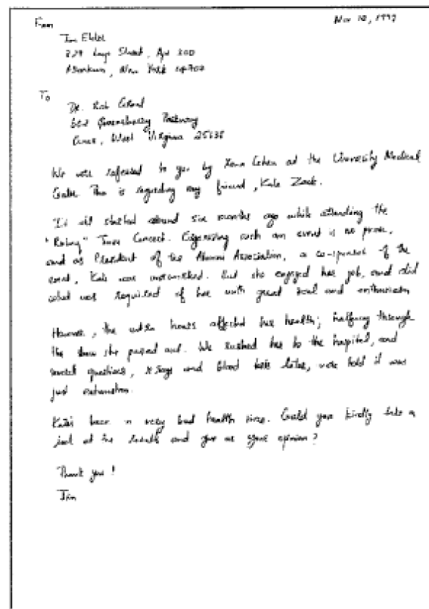 From
Nov 10, 1999
Jim Elder
829 Loop Street, Apt 300
Allentown, New York 14707
To
Dr. Bob Grant
602 Queensberry Parkway
Omar, West Virginia 25638
We were referred to you by Xena Cohen at the University Medical
Center. This is regarding my friend, Kate Zack.
It all started around six months ago while attending the
"Rubeq" Jazz Concert. Organizing such an event is no picnic,
and as President of the Alumni Association, a co-sponsor of the
event, Kate was overworked. But she enjoyed her job, and did
what was required of her with great zeal and enthusiasm.
However, the extra hours affected her health; halfway through
the show she passed out. We rushed her to the hospital, and
several questions, x-rays and blood tests later, were told it was
just exhaustion.
Kate's been in very bad health since. Could you kindly take a
look at the results and give us your opinion?
Thank you!
Jim